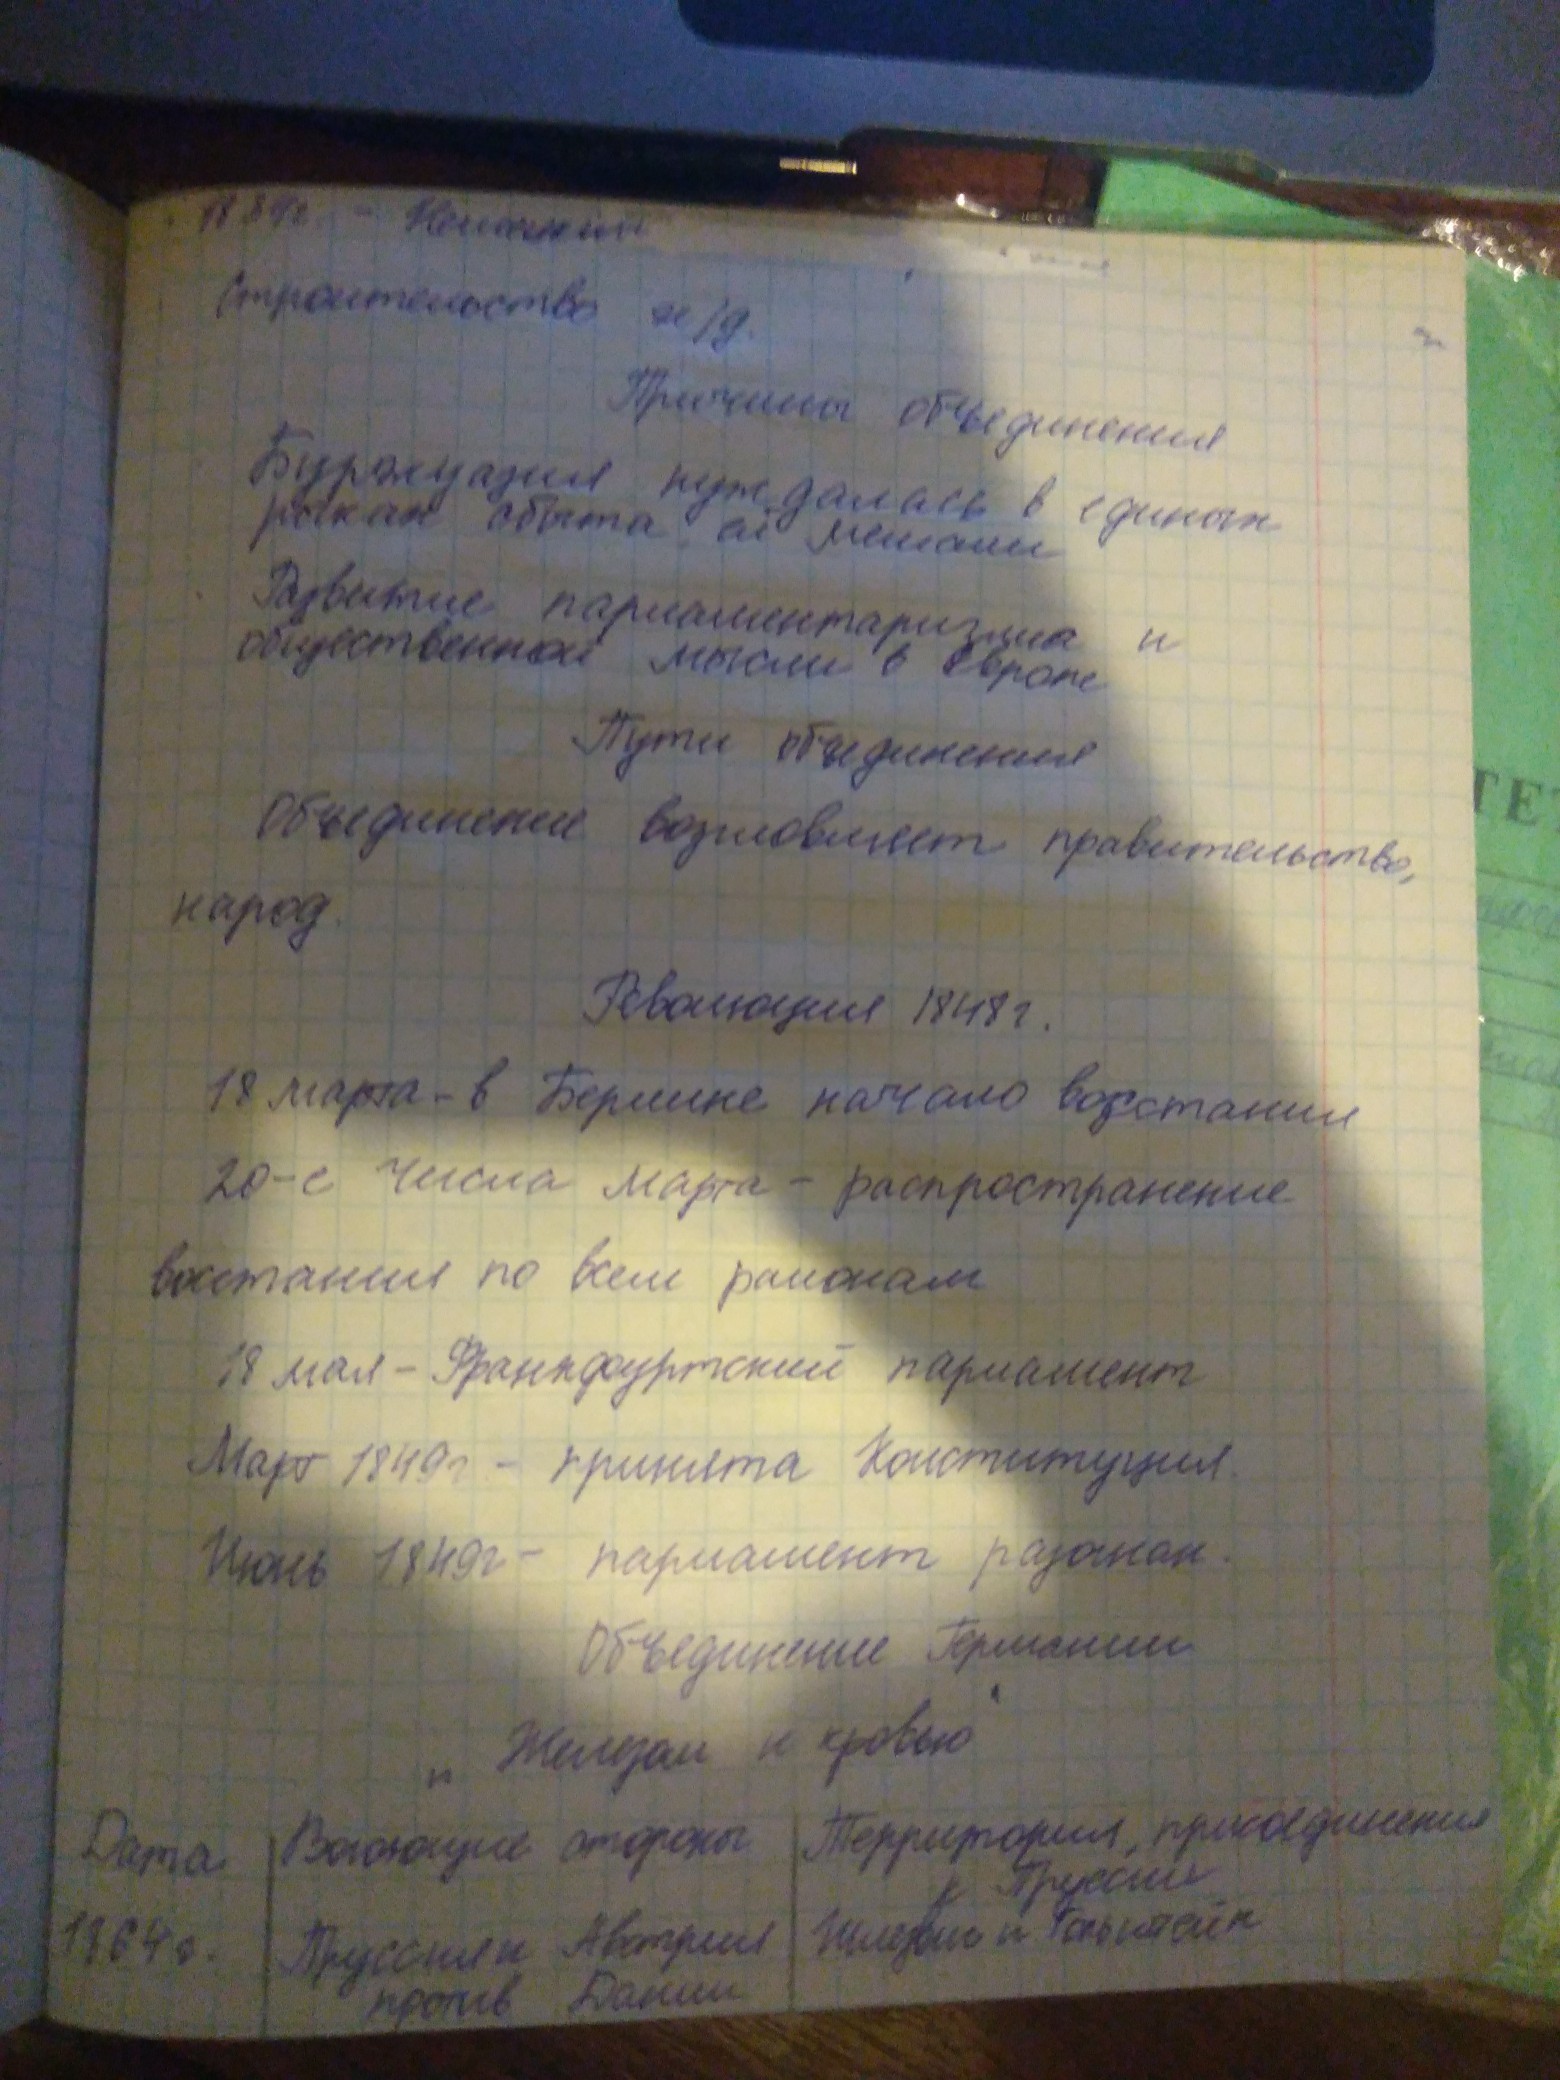 Строительство ж/д.
Причины объединения
Буржуазия нуждалась в единых
рынках сбыта, ей мешали
Развитие парламентаризма и
общественной мысли в Европе
Пути объединения
Объединение возглавляет правительство,
народ.
Революция 1848г.
18 марта - в Берлине начало восстания
20-е числа марта - распространение
восстания по всем районам
18 мая - Франкфуртский парламент
Март 1849г - принята Конституция.
1849г - парламент разогнан.
Объединение Германии
„Железом и кровью"
Дата Воюющие стороны Территория, присоединения
к Пруссии
1864г. Пруссия и Австрия Шлезвиг и Гольштейн
против Дании
ТЕТ